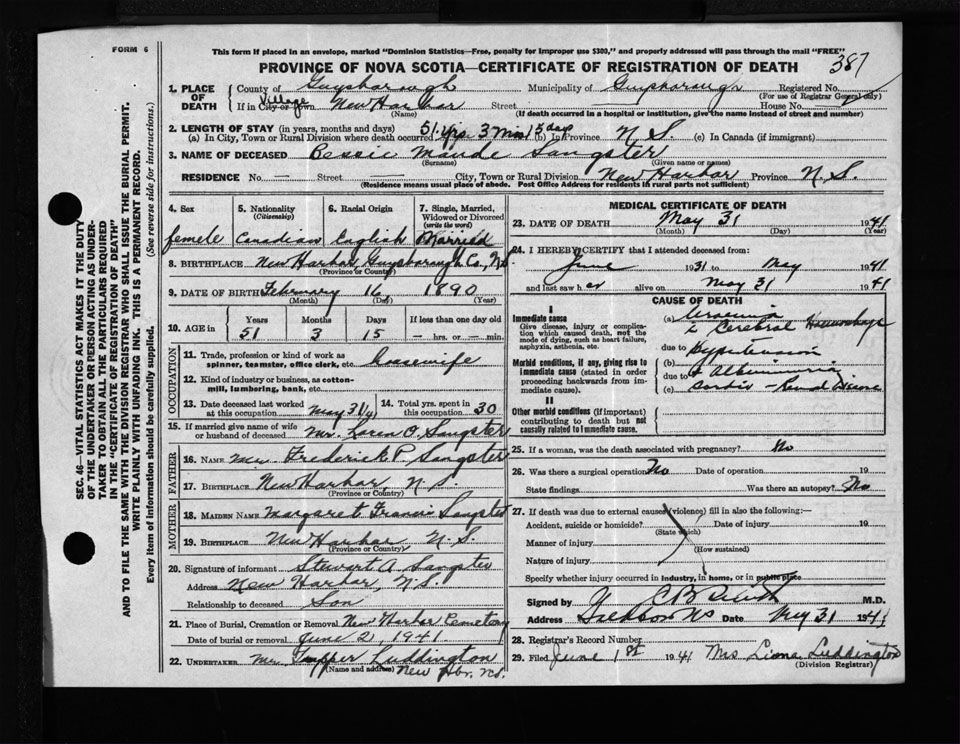 FORM 6
This form if placed in an envelope, marked "Dominion Statistics—Free, penalty for improper use $300," and properly addressed will pass through the mail "FREE"
PROVINCE OF NOVA SCOTIA—CERTIFICATE OF REGISTRATION OF DEATH
387
1. PLACE OF DEATH
County of Guysborough Municipality of Guysborough Registered No.
(For use of Registrar General only)
If in City or Town Village New Harbor Street — House No.
(Name) (If death occurred in hospital or institution, give the name instead of street and number)
2. LENGTH OF STAY (in years, months and days)
(a) In City, Town or Rural Division where death occurred 51 yrs 3 mos 15 days (b) In Province N.S. (c) In Canada (if immigrant)
3. NAME OF DECEASED Bessie Maude Sangster
(Surname) (Given name or names)
RESIDENCE No. — Street — City, Town or Rural Division New Harbor Province N.S.
(Residence means usual place of abode. Post Office Address for residents in rural parts not sufficient)
4. Sex 5. Nationality (Citizenship) 6. Racial Origin 7. Single, Married, Widowed or Divorced (write the word)
femele Canadian English Married
8. BIRTHPLACE New Harbor, Guysborough Co., N.S.
(Province or Country)
9. DATE OF BIRTH February 16, 1890
(Month) (Day) (Year)
10. AGE in Years Months Days If less than one day old
51 3 15 — hrs. or — min.
OCCUPATION
11. Trade, profession or kind of work as spinner, teamster, office clerk, etc. housewife
12. Kind of industry or business, as cotton-mill, lumbering, bank, etc.
13. Date deceased last worked at this occupation May 31/41 14. Total yrs. spent in this occupation 30
15. If married give name of wife or husband of deceased Mr. Loren O. Sangster
FATHER
16. Name Mr. Frederick P. Sangster
17. Birthplace New Harbor, N.S.
(Province or Country)
MOTHER
18. Maiden Name Margaret Francis Sangster
19. Birthplace New Harbor N.S.
(Province or Country)
20. Signature of informant Stewart A. Sangster
Address New Harbor, N.S.
Relationship to deceased Son
21. Place of Burial, Cremation or Removal New Harbor Cemetery
Date of burial or removal June 2, 1941
22. UNDERTAKER Mr. Tupper Luddington
(Name and address) New Hbr. N.S.
MEDICAL CERTIFICATE OF DEATH
23. DATE OF DEATH May 31 1941
(Month) (Day) (Year)
24. I HEREBY CERTIFY that I attended deceased from:
June 1931 to May 1941
and last saw her alive on May 31 1941
CAUSE OF DEATH
I
Immediate cause
Give disease, injury or complication which caused death, not the mode of dying, such as heart failure, asphyxia, asthenia, etc.
(a) Uraemia
& Cerebral Hemorrhage
due to
Morbid conditions, if any, giving rise to immediate cause (stated in order proceeding backwards from immediate cause).
(b) Hypertension
due to & Albuminuria
(c) Cardio-Renal Disease
II
Other morbid conditions (if important) contributing to death but not causally related to immediate cause.
25. If a woman, was the death associated with pregnancy? No
26. Was there a surgical operation? No Date of operation 19
State findings Was there an autopsy? No
27. If death was due to external causes (violence) fill in also the following:—
Accident, suicide or homicide? Date of injury 19
(State which)
Manner of injury
(How sustained)
Nature of injury
Specify whether injury occurred in industry, in home, or in public place
Signed by M.D.
Address Date May 31 1941
28. Registrar's Record Number
29. Filed June 1st 1941 Mrs Luddington
(Division Registrar)
SEC. 46—VITAL STATISTICS ACT MAKES IT THE DUTY
OF THE UNDERTAKER OR PERSON ACTING AS UNDER-
TAKER TO OBTAIN ALL THE PARTICULARS REQUIRED
IN THE "CERTIFICATE OF REGISTRATION OF DEATH"
AND TO FILE THE SAME WITH THE DIVISION REGISTRAR WHO SHALL ISSUE THE BURIAL PERMIT.
WRITE PLAINLY WITH UNFADING INK. THIS IS A PERMANENT RECORD.
Every item of information should be carefully supplied. (See reverse side for instructions.)